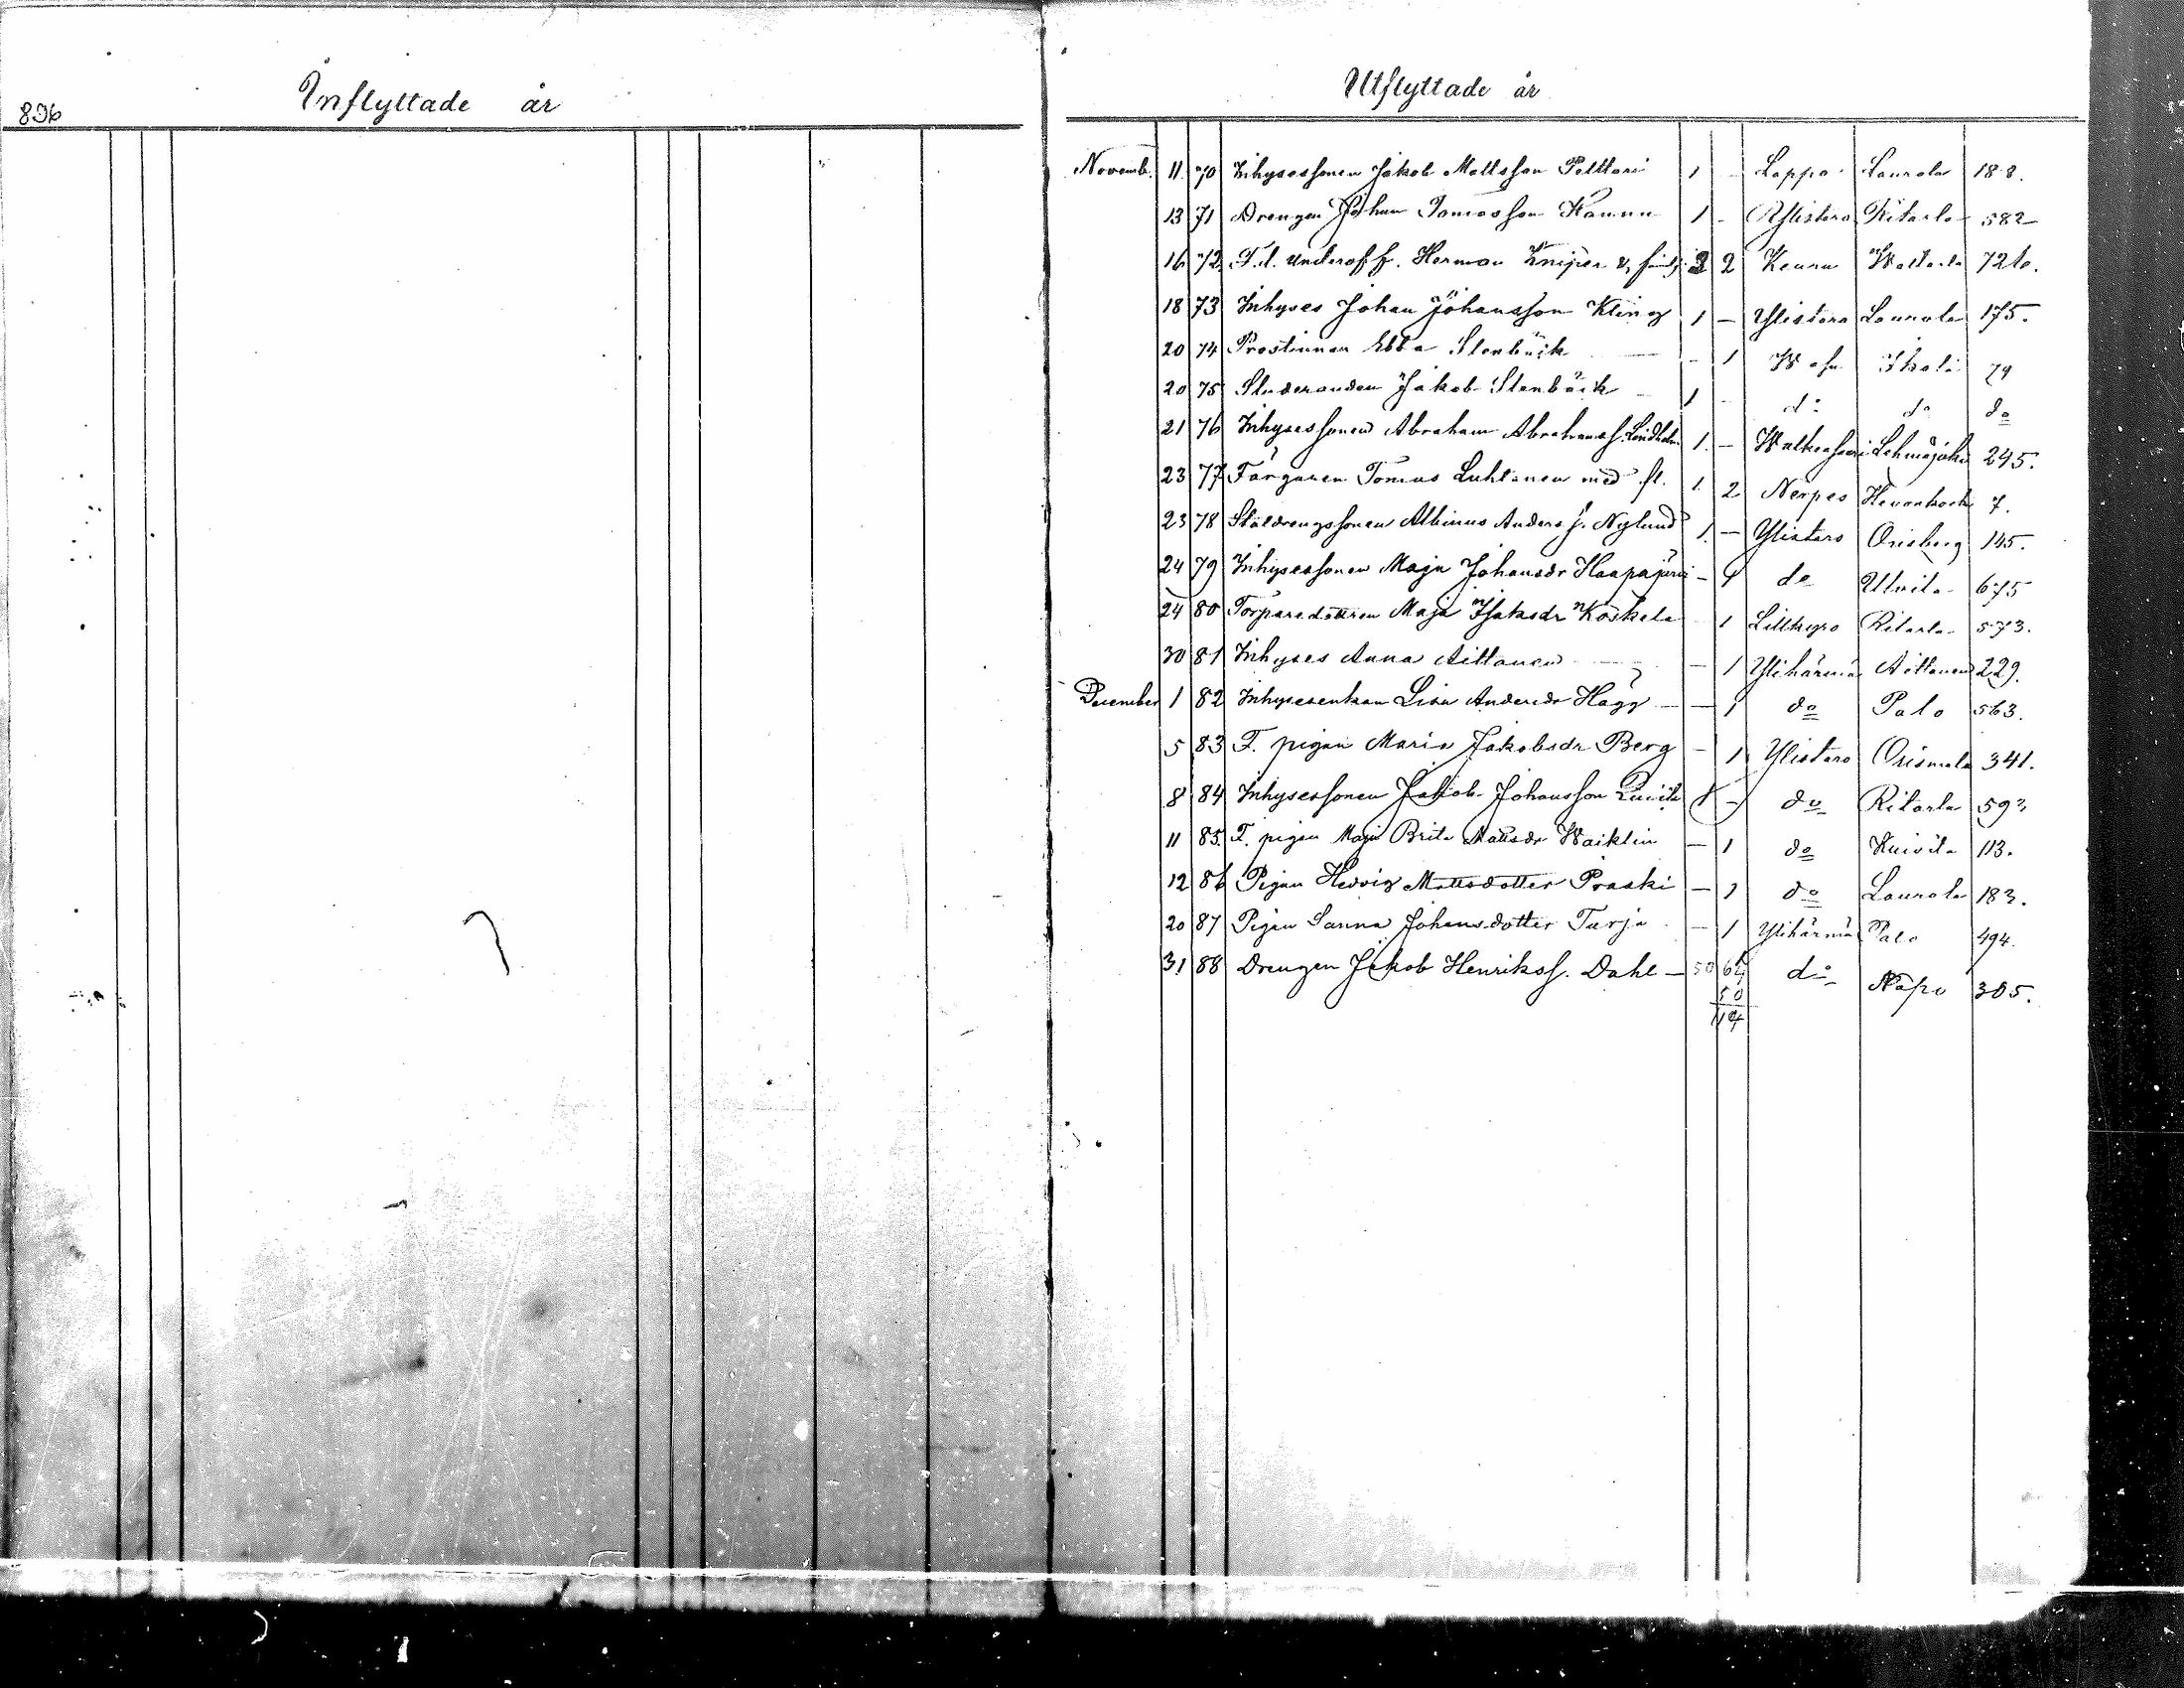 896
Inflyttade år
Utflyttade år
Novemb. 11 70 Inhysessonen Jakob Mattsson Peltteri 1 - Lappo Laurola 188.
13 71 Drengen Johan Tomasson Kamnu 1 - Ylistaro Ritarla 582
16 72 F.d. underoff. Herman Kniper & familj 2 2 Keuru Wattarla 726.
18 73 Inhyses Johan Johansson Kling 1 - Ylistaro Laurola 175.
20 74 Prostinnan Ebba Stenbäck - 1 Wasa Ikola 79
20 75 Studeranden Jakob Stenbäck 1 - do do do
21 76 Inhysessonen Abraham Abrahamss. Lindholm 1. - Lehmäjoki 245.
23 77 Färgaren Tomas Luhtanen med fl. 1. 2 Nerpes Hevonkoski 7.
23 78 Staldrengssonen Albinus Anders s. Nylund 1. - Ylistaro Orisberg 145.
24 79 Inhysessonen Maja Johansdr Haapajärvi - 1 do Ulvila 675
24 80 Torparedottren Maja Isaksdr Koskela 1 Lillkyro Ritarla 573.
30 81 Inhyses Anna Aittanen - 1 Ylihärmä Aittanen 229.
December 1 82 Inhysesenkan Lisa Andersdr Hägg - - 1 do Palo 563.
5 83 F. pigan Maria Jakobsdr Berg - 1 Ylistaro Orismala 341.
8 84 Inhysessonen Jakob Johansson 1 - do Ritarla 593
11 85. F. pigan Maja Brita Mattsdr Waiklin - 1 do Kuivila 113.
12 86 Pigan Hedvig Mattsdotter Praski - 1 do Laurola 183.
20 87 Pigan Sanna Johansdotter Turja - 1 Ylihärmä Palo 494.
31 88 Drengen Jakob Henrikss. Dahl - 50 64 do Napo 305.
50
114